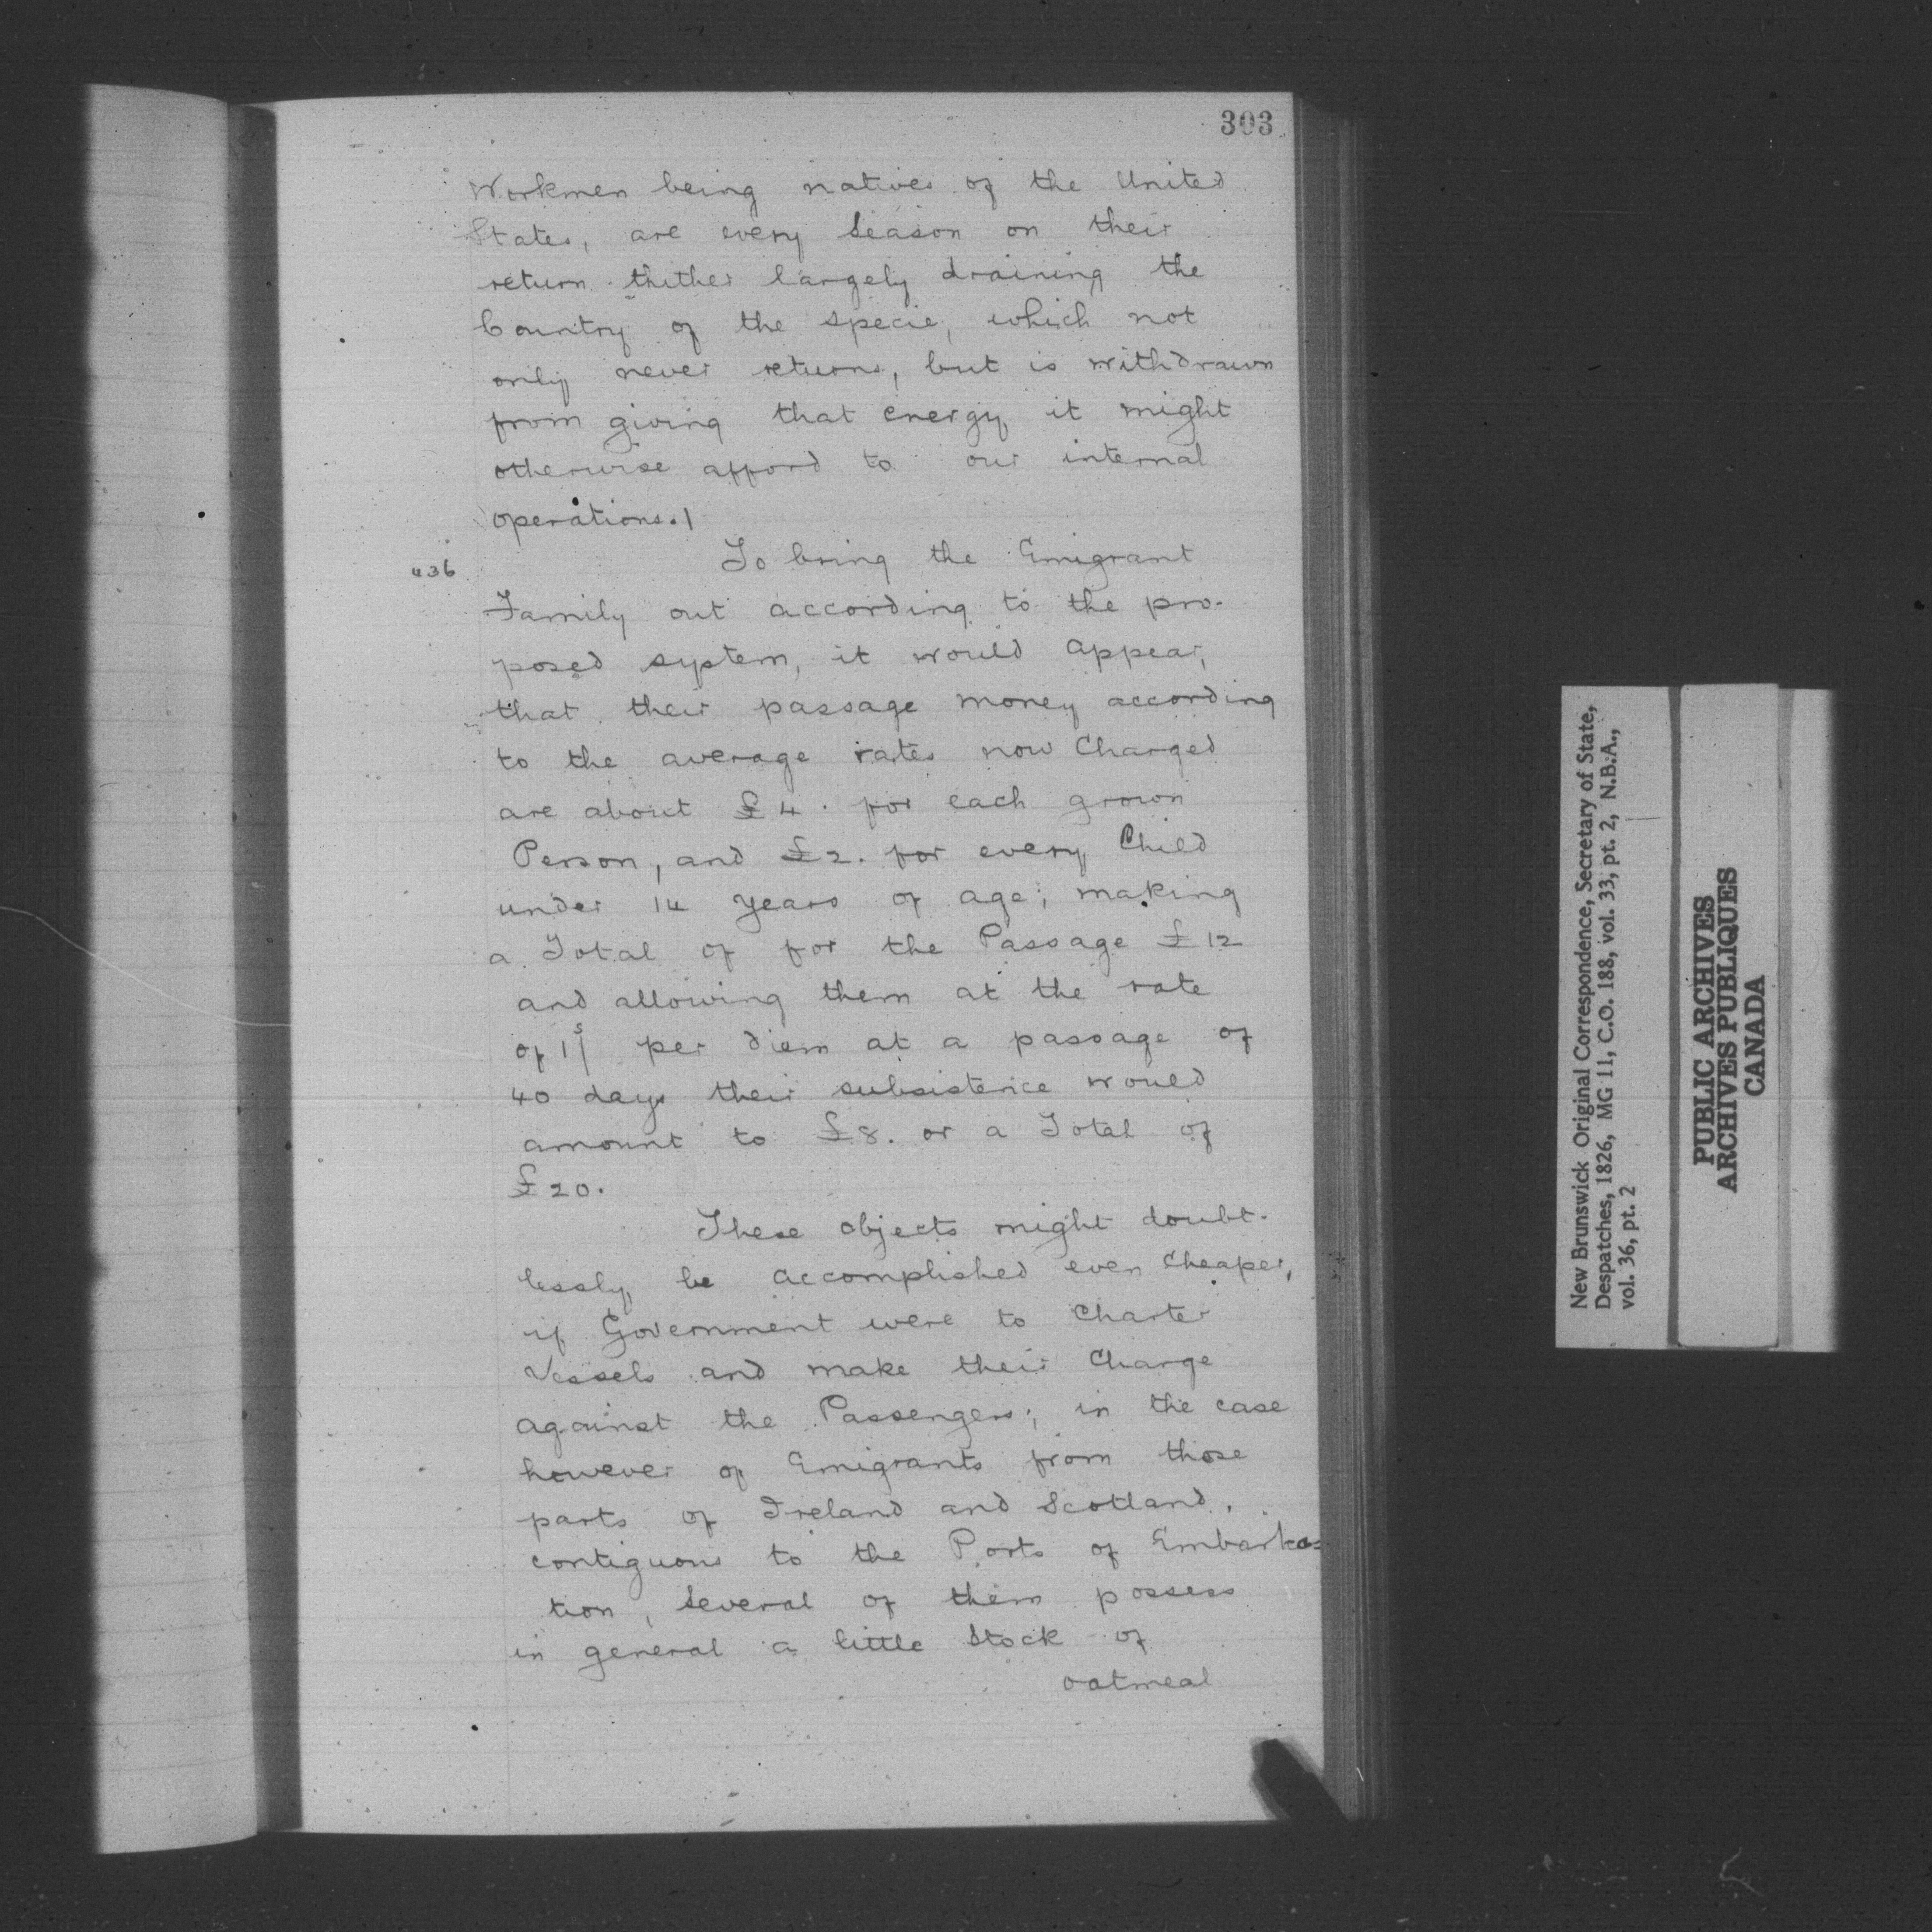 303
Workmen being natives of the United
States, are every Season on their
return thither largely draining the
Country of the specie, which not
only never returns, but is withdrawn
from giving that energy it might
otherwise afford to our internal
operations.
436
To bring the Emigrant
Family out according to the pro-
posed system, it would appear,
that their passage money according
to the average rates now Charged
are about £4. for each grown
Person, and £2. for every Child
under 14 years of age; making
a Total of for the Passage £12
and allowing them at the rate
of 1s/ per diem at a passage of
40 days their subsistence would
amount to £8. or a Total of
£20.
These objects might doubt-
lessly, be accomplished even Cheaper,
if Government were to Charter
Vessels and make their Charge
against the Passengers; in the case
however of Emigrants from those
parts of Ireland and Scotland,
contiguous to the Ports of Embarka=
tion, several of them possess
in general a little Stock of
oatmeal
New Brunswick Original Correspondence, Secretary of State,
Despatches, 1826, MG 11, C.O. 188, vol. 33, pt. 2, N.B.A.,
vol. 36, pt. 2
PUBLIC ARCHIVES
ARCHIVES PUBLIQUES
CANADA